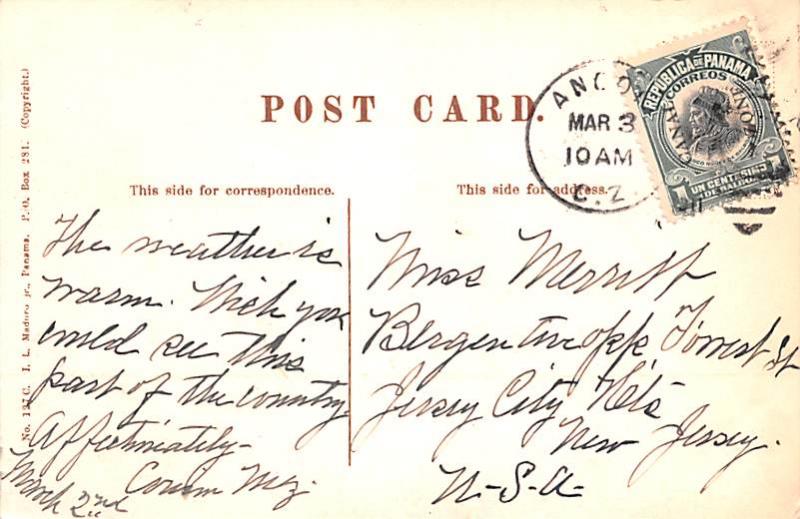 No. 127C. I. L. Maduro jr., Panama. P. O. Box 281. (Copyright.)
POST CARD.
This side for correspondence.
This side for address.
ANCO
MAR 3
10 AM
C. Z.
REPUBLICA DE PANAMA
CORREOS
CANAL ZONE
UN CENTESIMO
1 DE BALBOA
The weather is
warm. Wish you
could see this
part of the country
Affectiniately-
Cousin Meg.
March 2nd
Miss Merritt
Bergen Ave opp Forrest St
Jersey City Hts
New Jersey.
U-S-A-